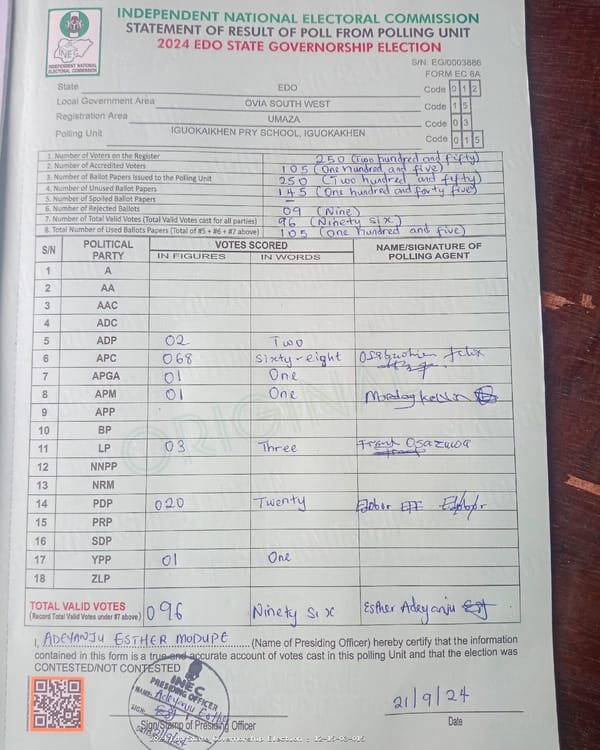 INDEPENDENT NATIONAL ELECTORAL COMMISSION
STATEMENT OF RESULT OF POLL FROM POLLING UNIT
2024 EDO STATE GOVERNORSHIP ELECTION
INEC
INDEPENDENT NATIONAL ELECTORAL COMMISSION
S/N. EG/0003886
FORM EC 8A
State EDO Code 0 1 2
Local Government Area OVIA SOUTH WEST Code 1 5
Registration Area UMAZA Code 0 3
Polling Unit IGUOKAIKHEN PRY SCHOOL, IGUOKAKHEN Code 0 1 5
1. Number of Voters on the Register 250 (Two hundred and fifty)
2. Number of Accredited Voters 105 (One hundred and five)
3. Number of Ballot Papers Issued to the Polling Unit 250 (Two hundred and fifty)
4. Number of Unused Ballot Papers 145 (One hundred and forty five)
5. Number of Spoiled Ballot Papers —
6. Number of Rejected Ballots 09 (Nine)
7. Number of Total Valid Votes (Total Valid Votes cast for all parties) 96 (Ninety six)
8. Total Number of Used Ballots Papers (Total of #5 + #6 + #7 above) 105 (One hundred and five)
S/N POLITICAL PARTY VOTES SCORED NAME/SIGNATURE OF POLLING AGENT
IN FIGURES IN WORDS
1 A
2 AA
3 AAC
4 ADC
5 ADP 02 Two
6 APC 068 Sixty-eight
7 APGA 01 One
8 APM 01 One
9 APP
10 BP
11 LP 03 Three Frank Osazuwa
12 NNPP
13 NRM
14 PDP 020 Twenty
15 PRP
16 SDP
17 YPP 01 One
18 ZLP
ORIGINAL
TOTAL VALID VOTES 096 Ninety six Esther Adeyanju
(Record Total Valid Votes under #7 above)
I, ADEYANJU ESTHER MODUPE (Name of Presiding Officer) hereby certify that the information
contained in this form is a true and accurate account of votes cast in this polling Unit and that the election was
CONTESTED/NOT CONTESTED
INEC
PRESIDING OFFICER
NAME: Adeyanju Esther
SIGN:
DATE: 21/9/24
21/9/24
Sign/Stamp of Presiding Officer Date